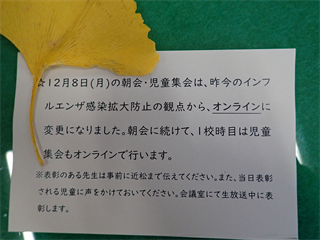 ☆12月8日(月)の朝会・児童集会は、昨今のインフ
ルエンザ感染拡大防止の観点から、オンラインに
変更になりました。朝会に続けて、1校時目は児童
集会もオンラインで行います。
※表彰のある先生は事前に近松まで伝えてください。また、当日表彰
される児童に声をかけておいてください。会議室にて生放送中に表
彰します。